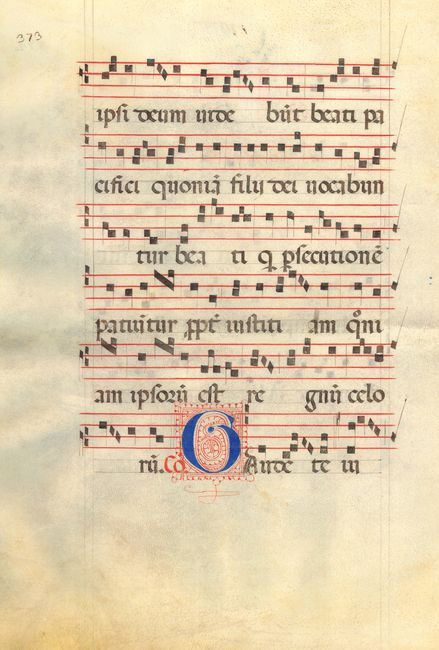 373
ipsi deum uide bũt beati pa
cifici quoniã filii dei uocabun
tur bea ti q̃ ꝑsecutionẽ
patiũtur ꝓpt̃ iustiti am qm̃
am ipsorũ est re gnũ celo
rũ. Cõ GAude te iu